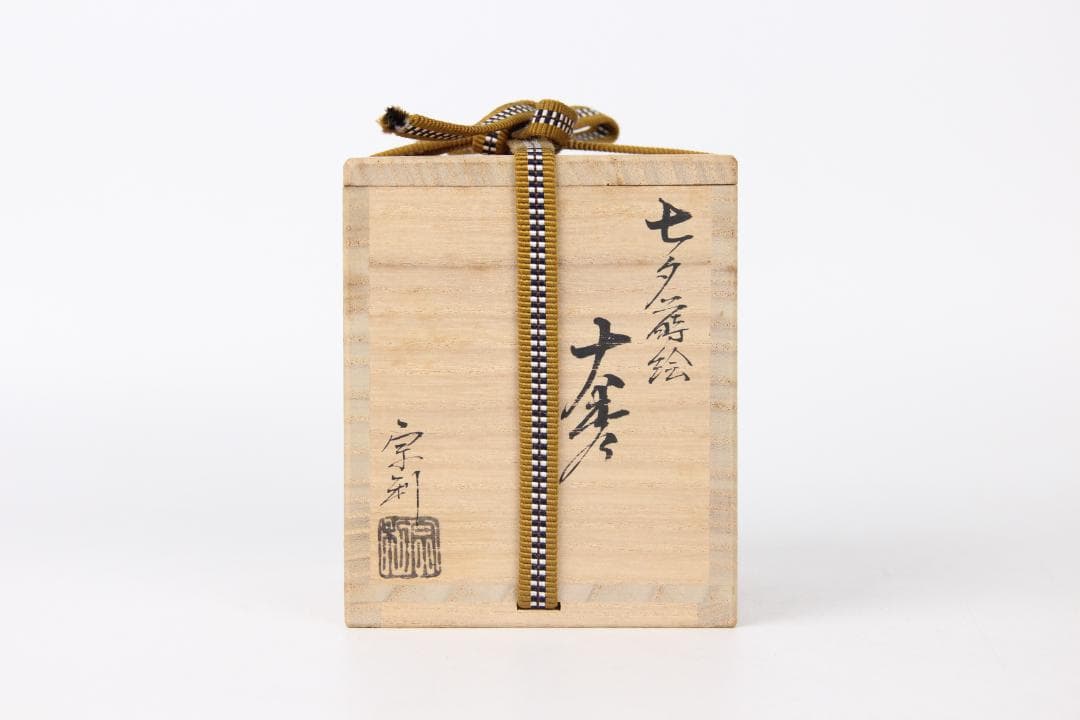 七夕蒔絵
大棗
宗利